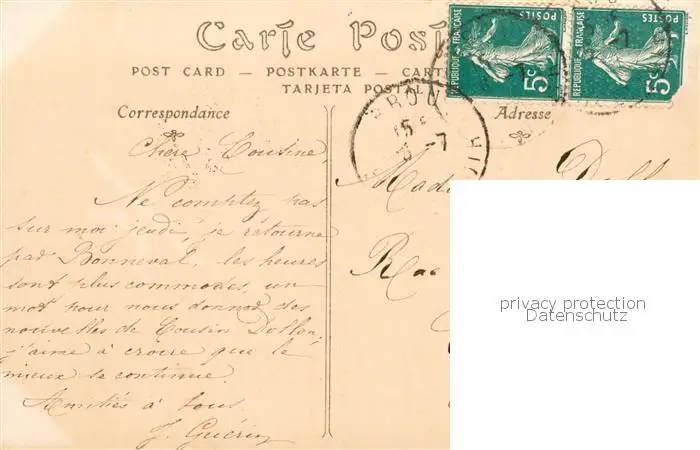 Carte Post
POST CARD — POSTKARTE — CART
TARJETA POSTAL
Correspondance
Adresse
RÉPUBLIQUE FRANÇAISE
POSTES
5c
RÉPUBLIQUE FRANÇAISE
POSTES
5c
BROU
15
-7
Chère Cousine,
Ne comptez pas
sur moi jeudi, je retourne
par Bonneval, les heures
sont plus commodes, un
mot pour nous donner des
nouvelles de Cousin Dollon,
j'aime à croire que le
mieux se continue.
Amitiés à tous.
J. Guérin
Mada
privacy protection
Datenschutz